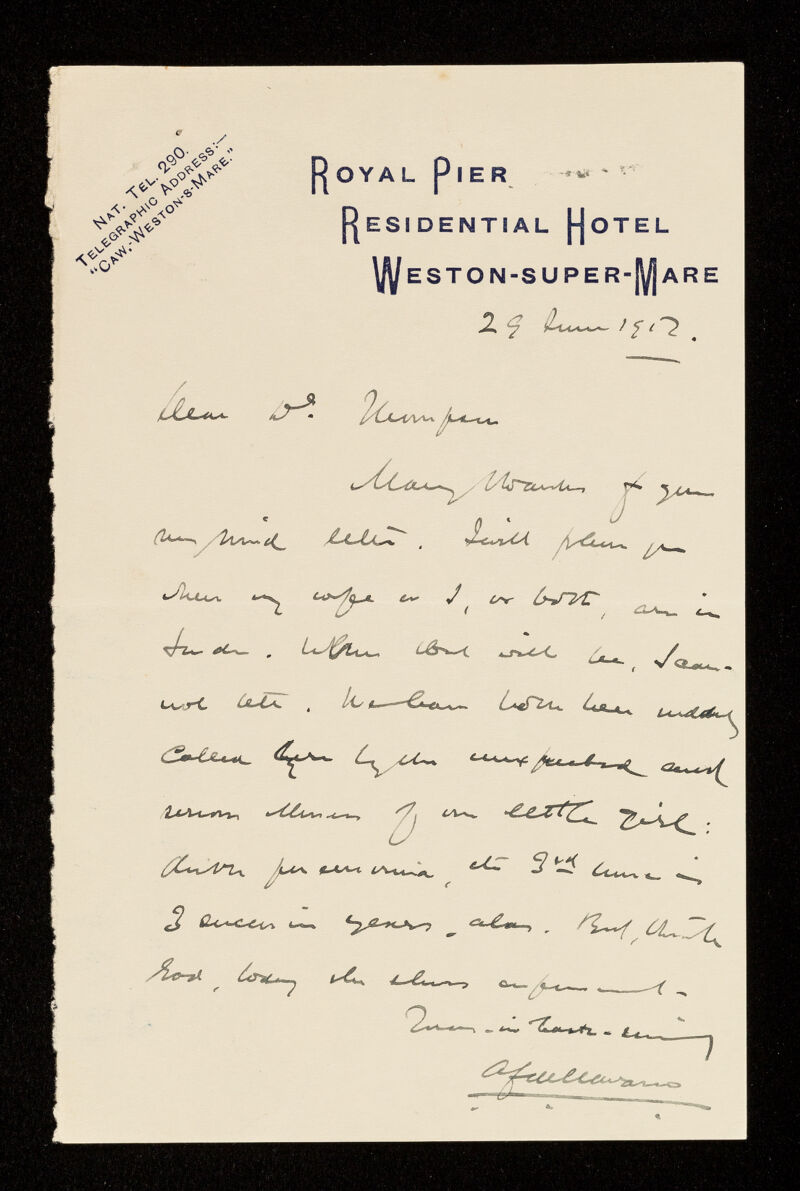 NAT. TEL. 290.
TELEGRAPHIC ADDRESS:—
"CAW.-WESTON-S-MARE."
ROYAL PIER
RESIDENTIAL HOTEL
WESTON-SUPER-MARE
29 June 1912.
Dear Dr. Thompson
Many thanks for your
very kind letter. I will phone you
when my wife or I, or both, are in
London. When that will be, I can-
not tell. We have both been suddenly
called here by the unexpected and
serious illness of our little girl:
double pneumonia, the 3rd time in
3 successive years, alas. But, thank
God, today she shows improvement.
Yours - in haste - sincerely
A F de Navarro